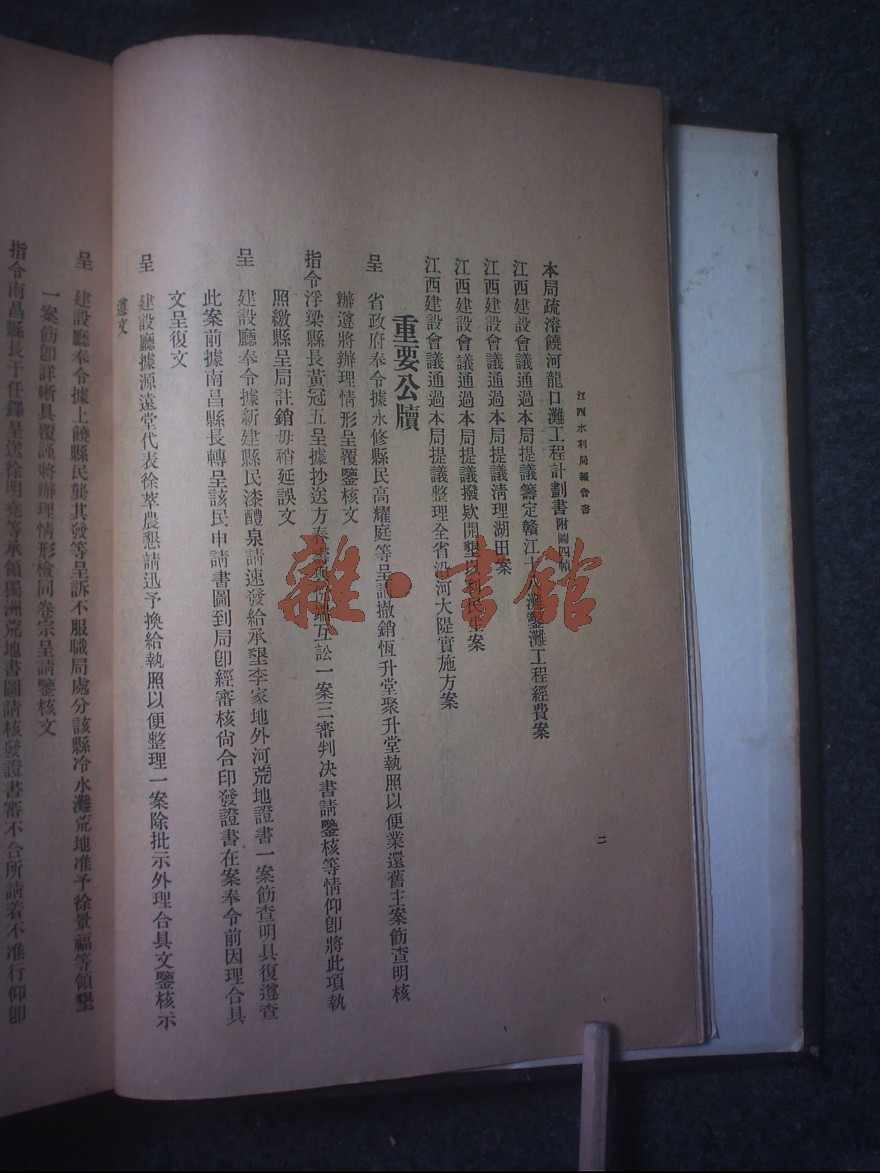 江西水利局報告書
二
本局疏濬饒河龍口灘工程計劃書附圖四幀
江西建設會議通過本局提議籌定贛江十八灘鑿灘工程經費案
江西建設會議通過本局提議清理湖田案
江西建設會議通過本局提議撥欵開墾以利民生案
江西建設會議通過本局提議整理全省沿河大隄實施方案
重要公牘
呈 省政府奉令據永修縣民高耀庭等呈請撤銷恆升堂聚升堂執照以便業還舊主案飭查明核
辦遵將辦理情形呈覆鑒核文
指令浮梁縣長黃冠五呈據抄送方泰 互訟一案三審判决書請鑒核等情仰卽將此項執
照繳縣呈局註銷毋稍延誤文
呈 建設廳奉令據新建縣民漆醴泉請速發給承墾李家地外河荒地證書一案飭查明具復遵查
此案前據南昌縣長轉呈該民申請書圖到局卽經審核尙合印發證書在案奉令前因理合具
文呈復文
呈 建設廳據源遠堂代表徐萃農懇請迅予換給執照以便整理一案除批示外理合具文鑒核示
遵文
呈 建設廳奉令據上饒縣民龔其發等呈訴不服職局處分該縣冷水灘荒地准予徐景福等領墾
一案飭卽詳晰具覆謹將辦理情形檢同卷宗呈請鑒核文
指令南昌縣長于任鐸呈送徐明堯等承領獨洲荒地書圖請核發證書審不合所請着不准行仰卽
雜·書館